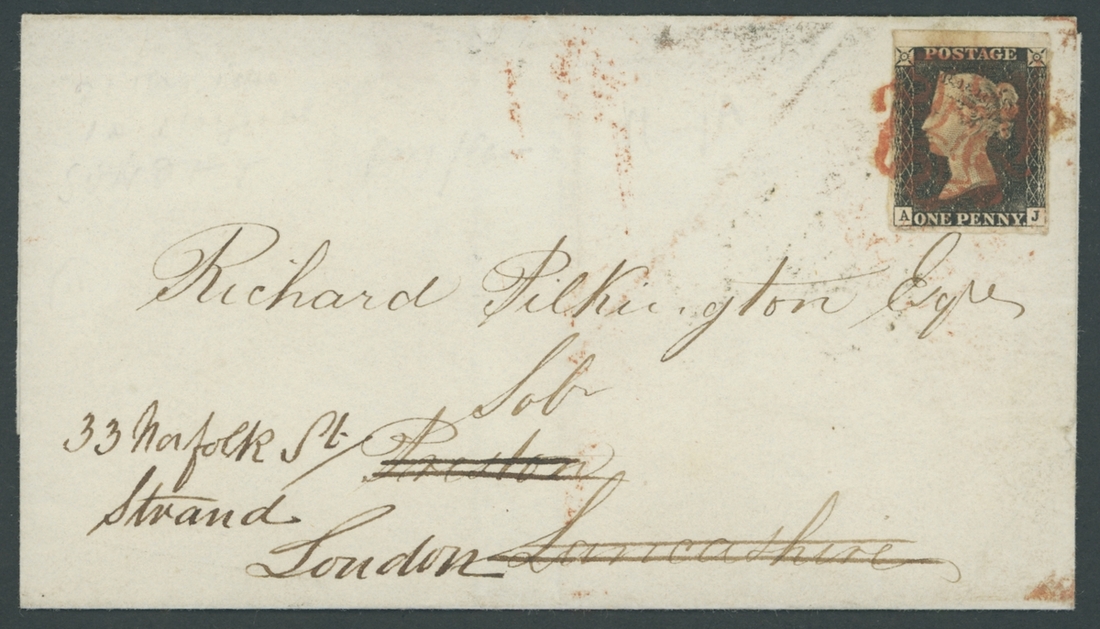 POSTAGE
A ONE PENNY. J
Richard Pilkington Esqre
Solr
33 Norfolk St. Preston
Strand
London Lancashire